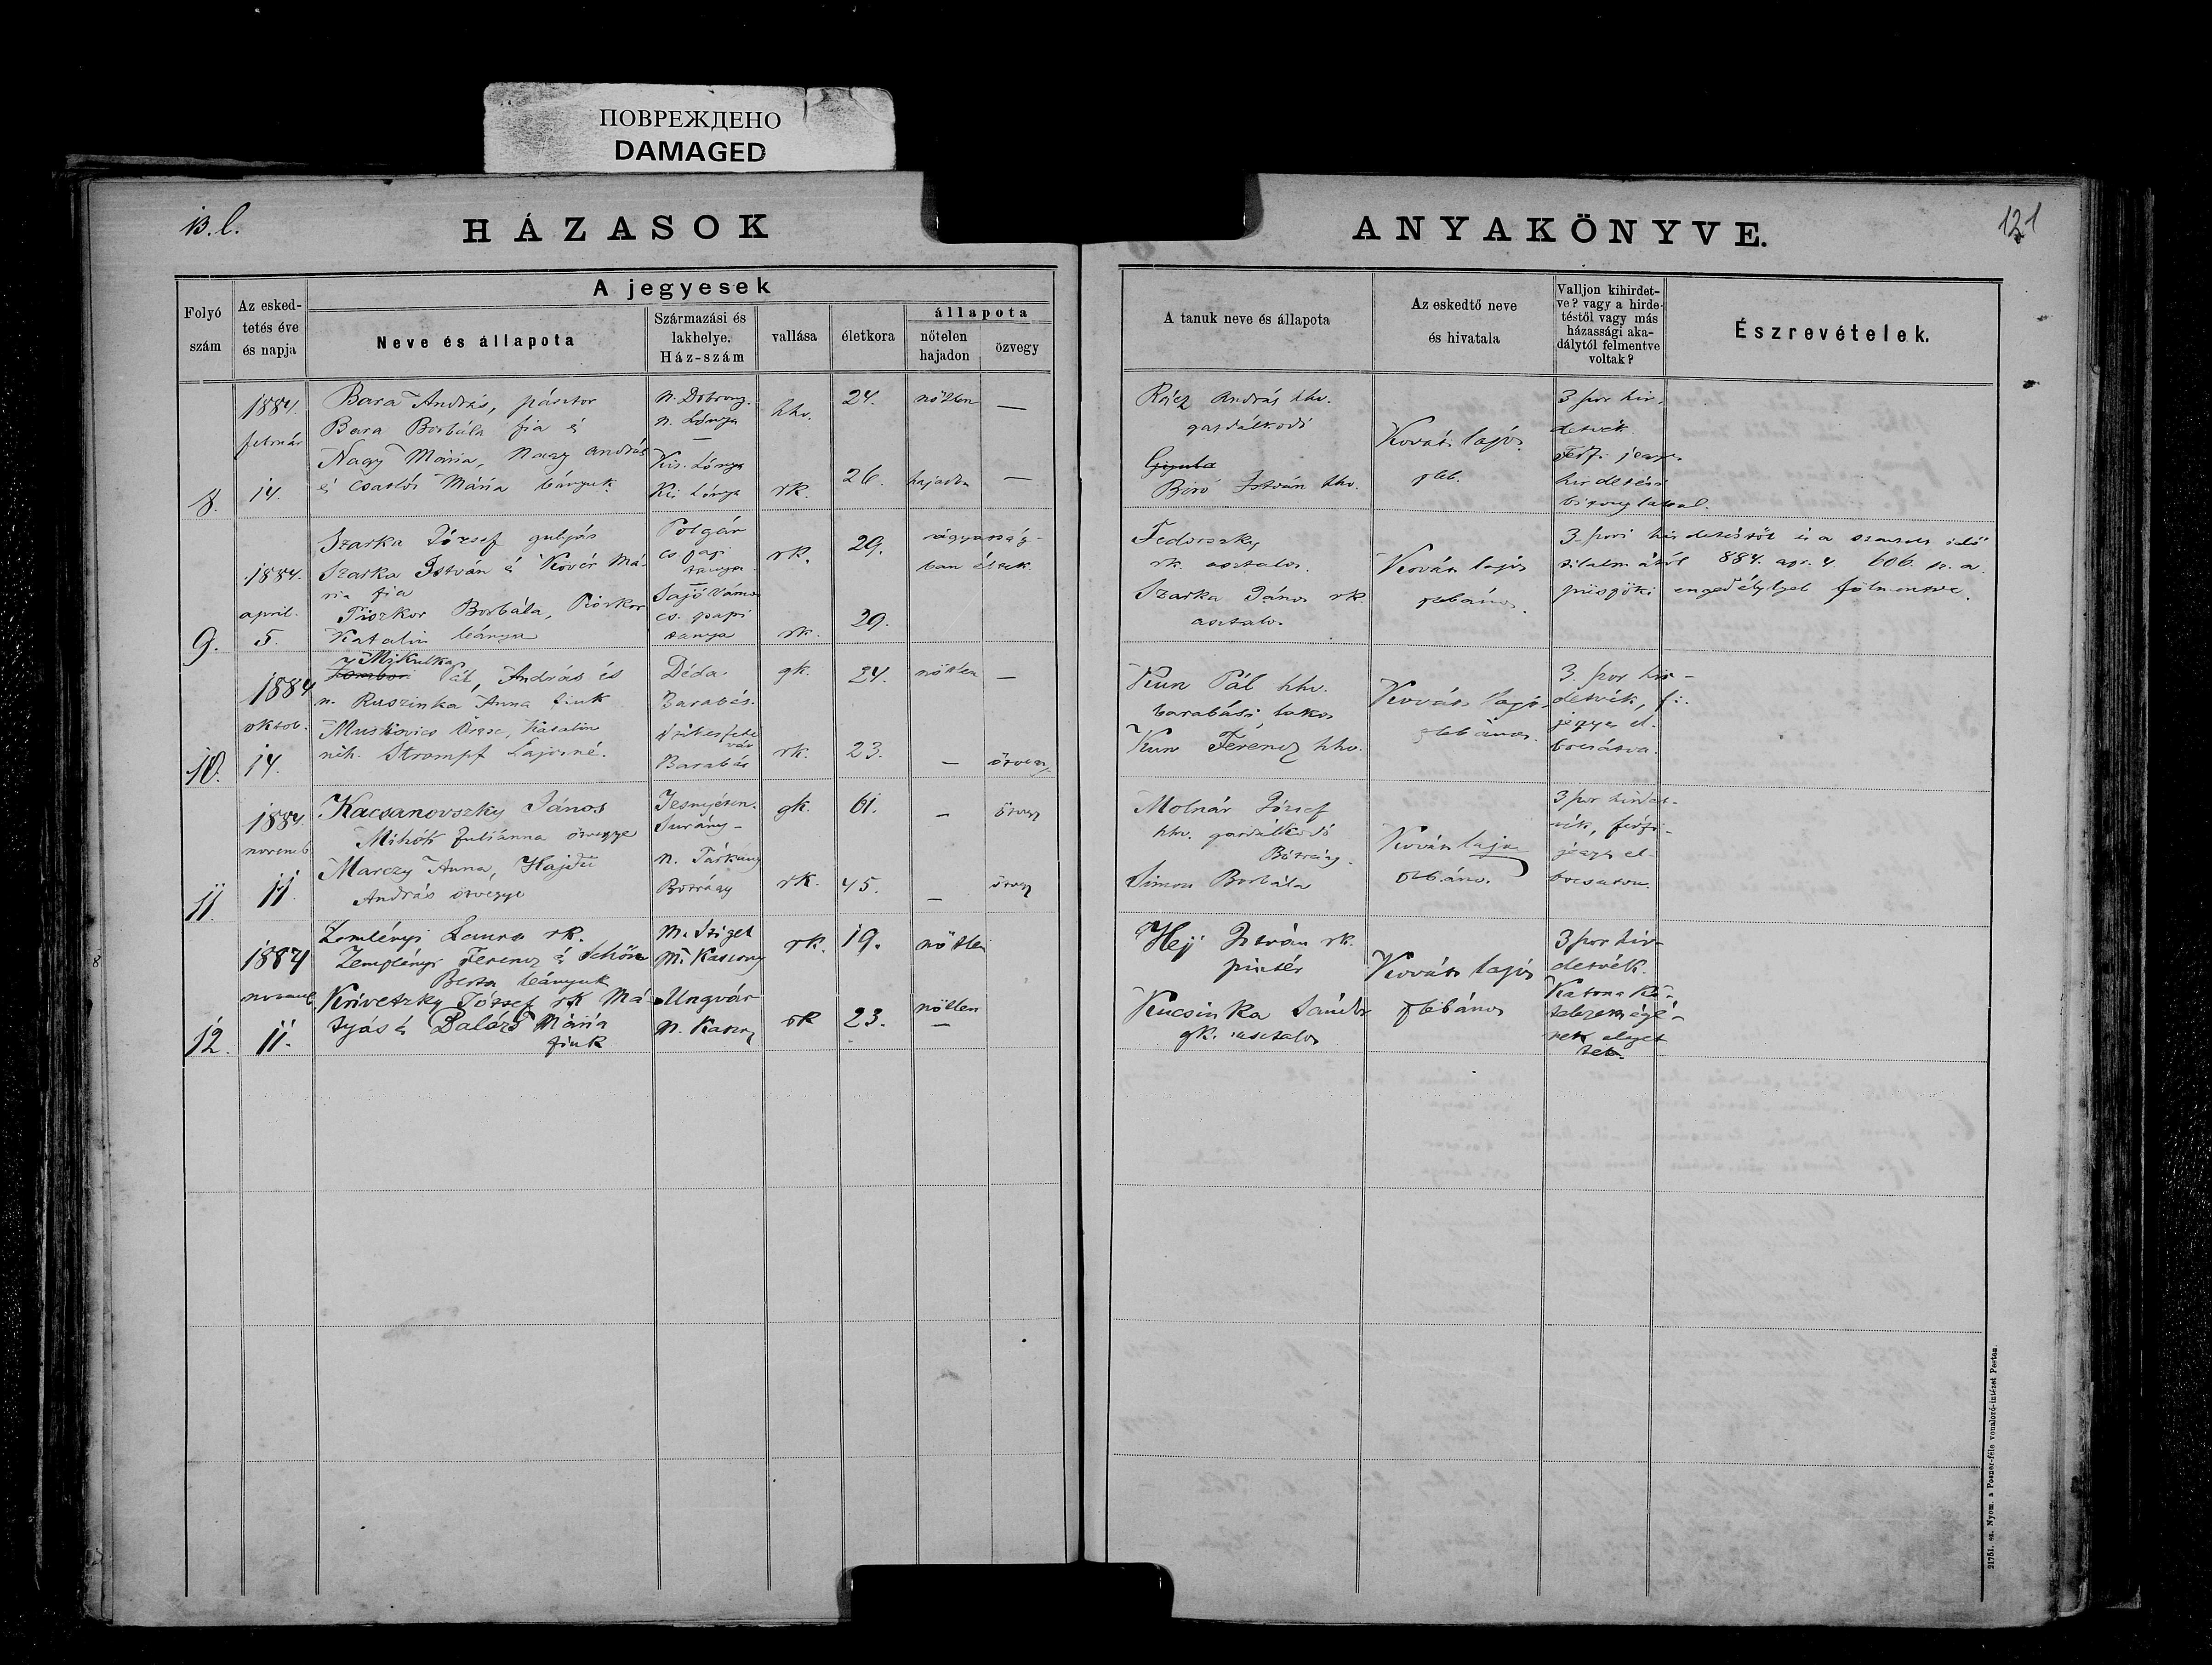 ПОВРЕЖДЕНО
DAMAGED
13. l.
HÁZASOK
ANYAKÖNYVE.
121
Folyó szám
Az esked-
tetés éve
és napja
A jegyesek
Neve és állapota
Származási és
lakhelye.
Ház-szám
vallása
életkora
állapota
nőtelen
hajadon
özvegy
A tanuk neve és állapota
Az eskedtő neve
és hivatala
Valljon kihirdet-
ve? vagy a hirde-
téstől vagy más
házassági aka-
dálytól felmentve
voltak?
Észrevételek.
8.
1884.
február
14.
Bara András, pásztor
Bara Borbála fia és
Nagy Mária, Nagy András
és Mária leányuk
N. Dobrony.
N. Lónya
Kis Lónya
Kis Lónya
hhv.
rk.
24.
26.
nőtlen
hajadon
Rácz András hhv.
gazdálkodó
Biró István hhv.
Kováts Lajos
pleb.
3 szor hir-
detvék.
hirdetési
bizonylattal.
9.
1884.
april.
5.
Szarka József gulyás
Szarka István és Kövér Má-
ria fia
Piszkor Borbála, Piszkor
Katalin leánya
Polgár
tanya
Sajó Vámos
cs. papi
tanya
rk.
rk.
29.
29.
ágyasság-
ban éltek.
Fedorszky
rk. asztalos.
Szarka János rk.
asztalos.
Kováts Lajos
plebános.
3 szori hirdetéstől és a szent idő
tilalmától 884. apr. 4. 606. sz. a.
püspöki engedélylyel fölmentve.
10.
1884
oktob.
14.
Mikulka
Pál, András és
n. Ruszinka Anna fiuk
Katalin
néh. Strompf Lajosné.
Déda.
Barabás.
Barabás
gk.
rk.
24.
23.
nőtlen
özvegy
Kun Pál hhv.
barabási lakos
Kun Ferencz hhv.
Kováts Lajos
plebános.
3. szor hir-
detvék, f.
jegyes el-
bocsátva.
11.
1884
novemb.
11
Kacsanovszky János
Mihók Juliánna özvegye
Marczy Anna, Hajdu
András özvegye
Surány
N. Tárkány
gk.
rk.
61.
45.
özvegy
özvegy
Molnár József
hhv. gazdálkodó
Simon Borbála
Kováts Lajos
plebános.
3 szor hirdet-
vék, férfi-
jegyes el-
bocsátva.
12.
1884
novemb.
11.
Zemlényi Laura rk.
Zemplényi Ferencz és Schön
Berta leányuk
Krivetzky József rk Má-
tyás és Balázs Mária
fiuk
M. Sziget
M. Kaszony
Ungvár
M. Kaszony
rk.
rk
19.
23.
nőtlen
nőtlen
Hej István rk.
pintér
Kucsinka Sándor
gk. asztalos
Kováts Lajos
plebános
3 szor hir-
detvék.
Katona kö-
telezettségé-
nek eleget
tett.
21751. sz. Nyom. a Posner-féle vonalozó-intézet Pesten.